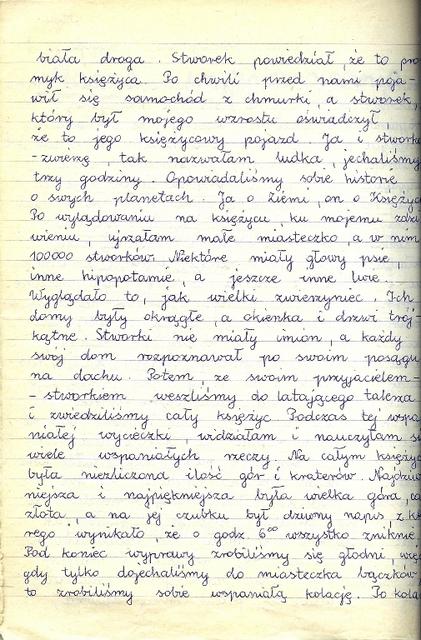 biała droga. Stworek powiedział, że to pro
myk księżyca. Po chwili przed nami poja-
wił się samochód z chmurki, a stworek,
który był mojego wzrostu oświadczył,
że to jego księżycowy pojazd. Ja i stworko
-zwierzę, tak nazwałam ludka, jechaliśmy
trzy godziny. Opowiadaliśmy sobie historie
o swych planetach. Ja o Ziemi, on o Księżyc
Po wylądowaniu na księżycu, ku mojemu zdzi
wieniu, ujrzałam małe miasteczko, a w nim
100000 stworków. Niektóre miały głowy psie,
inne hipopotamie, a jeszcze inne lwie.
Wyglądało to, jak wielki zwierzyniec. Ich
domy były okrągłe, a okienka i drzwi trój-
kątne. Stworki nie miały imion, a każdy
swój dom rozpoznawał po swoim posągu
na dachu. Potem ze swoim przyjacielem-
- stworkiem weszliśmy do latającego talerza
i zwiedziliśmy cały księżyc. Podczas tej wspa
niałej wycieczki, widziałam i nauczyłam si
wiele wspaniałych rzeczy. Na całym księżyc
była niezliczona ilość gór i kraterów. Najdziw
niejsza i najpiękniejsza była wielka góra, ca
złota, a na jej czubku był dziwny napis, z kt
rego wynikało, że o godz. 6⁰⁰ wszystko zniknie.
Pod koniec wyprawy zrobiliśmy się głodni, więc
gdy tylko dojechaliśmy do miasteczka bączków,
to zrobiliśmy sobie wspaniałą kolację. Po kolac